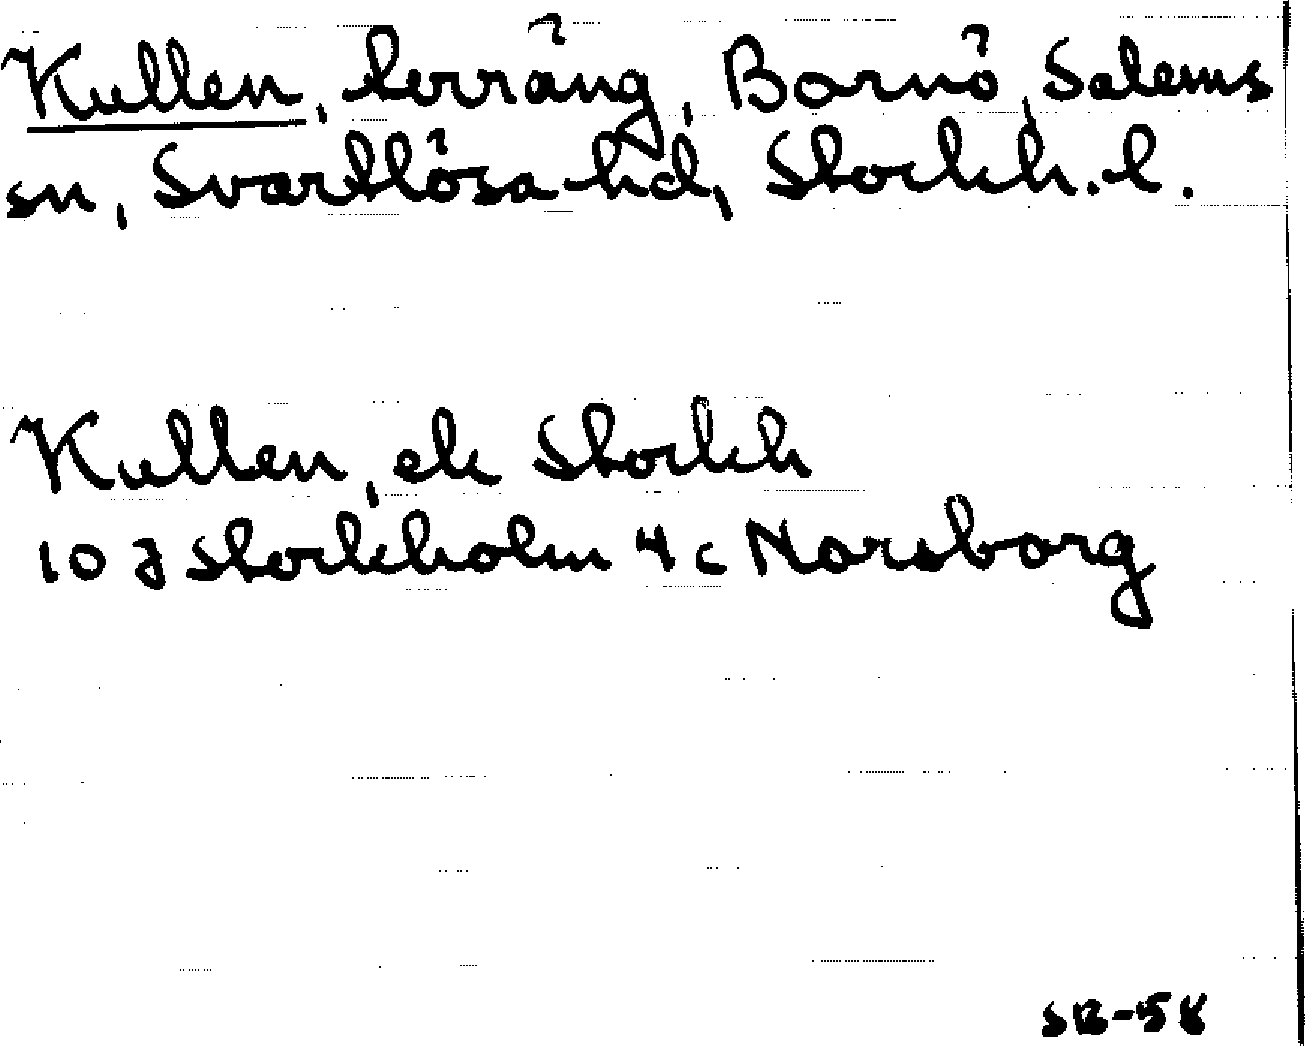 Kullen, terräng, Bornö, Salems
sn, Svartlösa hd, Stockh. l.
Kullen, ek Stockh
10 J Stockholm 4 c Norsborg
SB-58